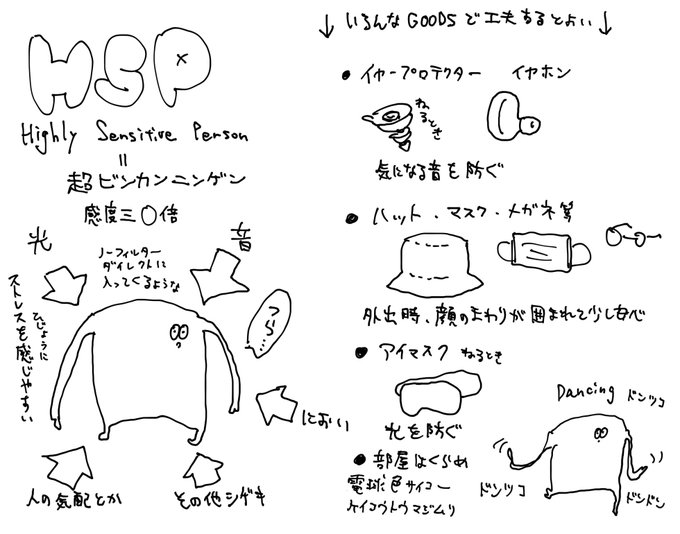 HSP
Highly Sensitive Person
=
超ビンカンニンゲン
感度三〇倍
光
音
ノーフィルター
ダイレクトに
入ってくるような
ひじょうに
ストレスを感じやすい
つら…
におい
人の気配とか
その他シゲキ
↓いろんなGOODSで工夫するとよい↓
●イヤープロテクター イヤホン
ねるとき
気になる音を防ぐ
●ハット・マスク・メガネ等
外出時、顔のまわりが囲まれて少し安心
●アイマスク ねるとき
光を防ぐ
●部屋はくらめ
電球色サイコー
ケイコウトウマジムリ
Dancing ドンツコ
ドンツコ
ドンドン